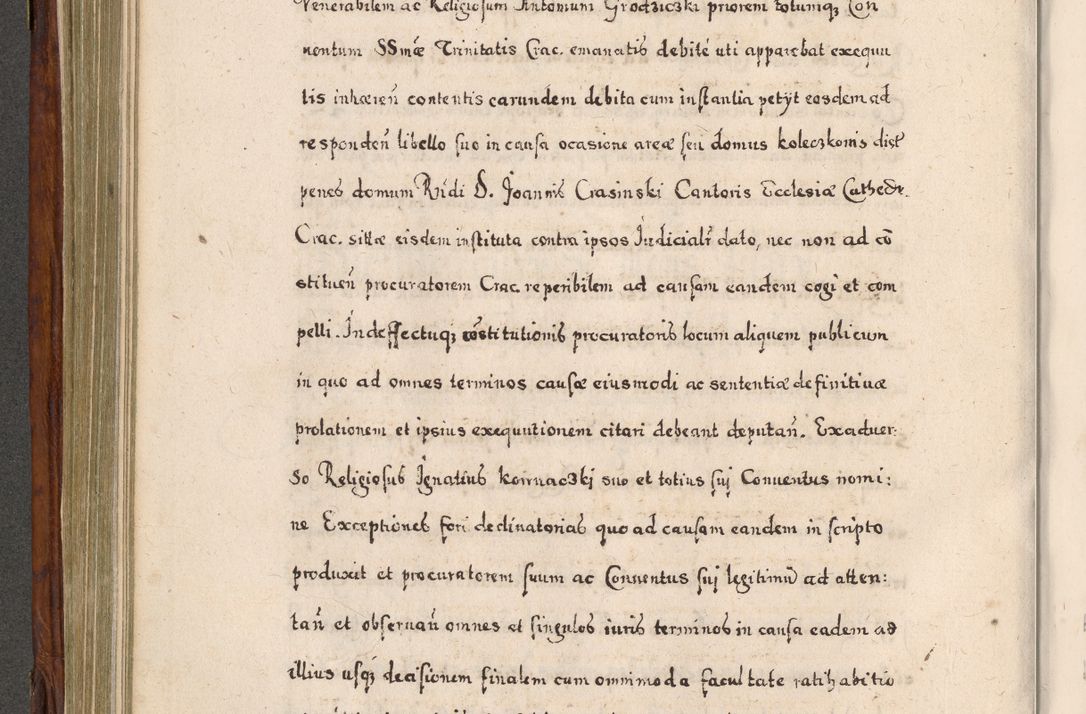 Venerabilem ac Religiosum Antonium Grodziczki priorem totumq3 Con
uentum SSmæ Trinitatis Crac. emanatis debité uti apparebat exequu
tis inhæreñ contentis earundem debita cum instantia petÿt eosdem ad
respondeñ libello suo in causa ocasione areæ seu domus koleczkonis dict
penes domum Rñdi D. Joannis Crasinski Cantoris Ecclesiæ Cathedr.
Crac. sittæ eisdem instituta contra ipsos Judicialr dato, nec non ad cō
stitueñ procuratorem Crac. reperibilem ad causam eandem cogi et com
pelli. In deffectuq3 cōstitutionis procuratoris locum aliquem publicum
in quo ad omnes terminos causæ eiusmodi ac sententiæ definitiuæ
prolationem et ipsius exequutionem citari debeant deputañ. Ex aduer:
so Religiosus Ignatius konnaczki suo et totius sui Conuentus nomi:
ne Exceptiones fori declinatorias quo ad causam eandem in scripto
produxit et procuratorem suum ac Conuentus sui legitimū ad atten:
tañ et obseruañ omnes et singulos iuris terminos in causa eadem ad
illius usq3 decisionem finalem cum omnimoda facultate ratihabitio